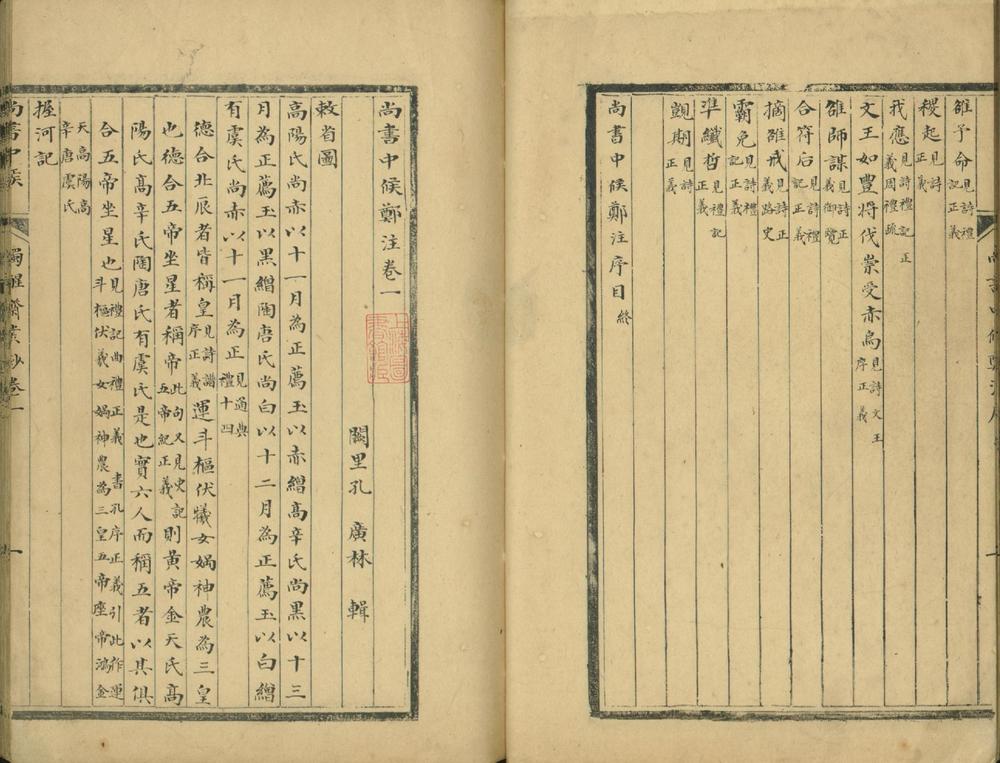 雒予命見詩禮記正義
稷起見詩正義
我應見詩禮記正義周禮疏
文王如豐將伐崇受赤烏見詩文王序正義
雒師謀見詩正義御覽
合符后見詩禮記正義
摘雒戒見詩正義路史
霸免見詩禮記正義
凖纖哲見禮記正義
覬期見詩正義
尚書中候鄭注序目終
尚書中候鄭注卷一
上海圖書館藏
闕里孔廣林輯
敕省圖
高陽氏尚赤以十一月為正薦玉以赤繒高辛氏尚黑以十三
月為正薦玉以黑繒陶唐氏尚白以十二月為正薦玉以白繒
有虞氏尚赤以十一月為正見通典禮十四
德合北辰者皆稱皇見詩譜序正義運斗樞伏犧女媧神農為三皇
也德合五帝坐星者稱帝此句又見史記五帝紀正義則黃帝金天氏高
陽氏高辛氏陶唐氏有虞氏是也實六人而稱五者以其俱
合五帝坐星也見禮記曲禮正義書孔序正義引此作運斗樞伏羲女媧神農為三皇五帝座帝鴻金
天高陽高辛唐虞氏
握河記
尚書中候
卷一
一